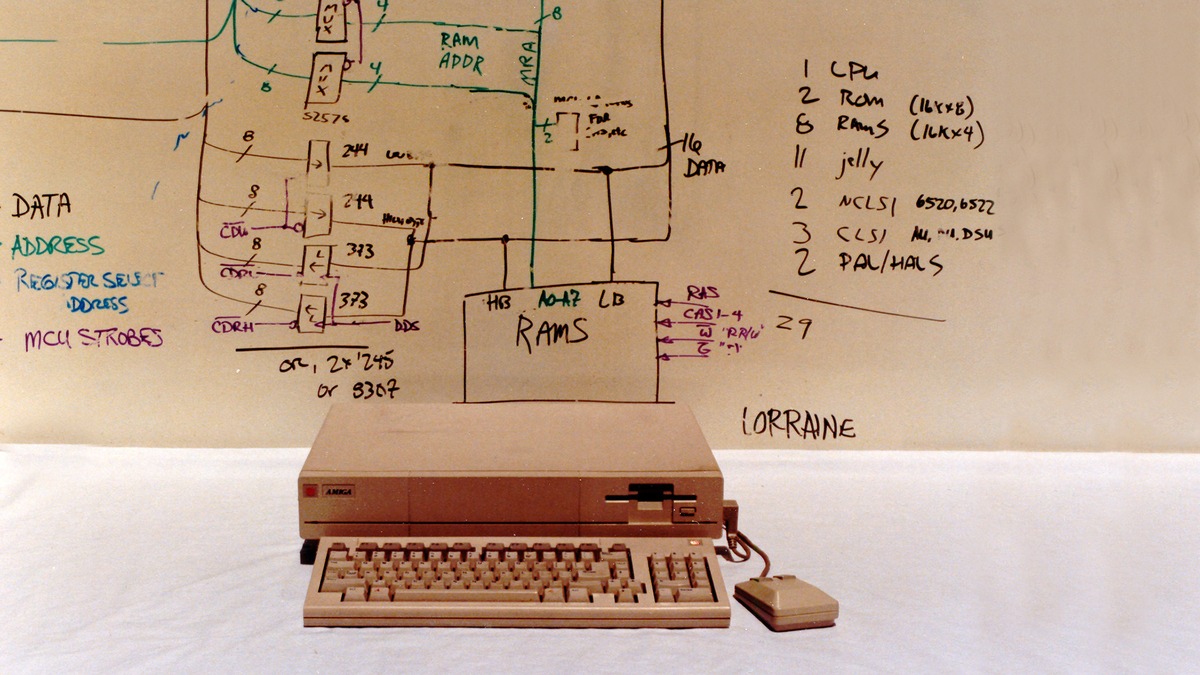 MUX
4
8
RAM
ADDR
MRA
8
MUX
4
S257s
FOR
2
16
DATA
8
244
8
244
CDW
8
373
CDRL
8
373
CDRH
DDS
OR, 2x '245
OR 8307
DATA
ADDRESS
REGISTER SELECT
DDRESS
MCU STROBES
HB A0-A7 LB
RAMS
RAS
CAS1-4
W "RR/W"
G
1 CPU
2 ROM (16Kx8)
8 RAMS (16Kx4)
11 jelly
2 NCLSI 6520,6522
3 CLSI
2 PAL/HALS
29
LORRAINE
AMIGA